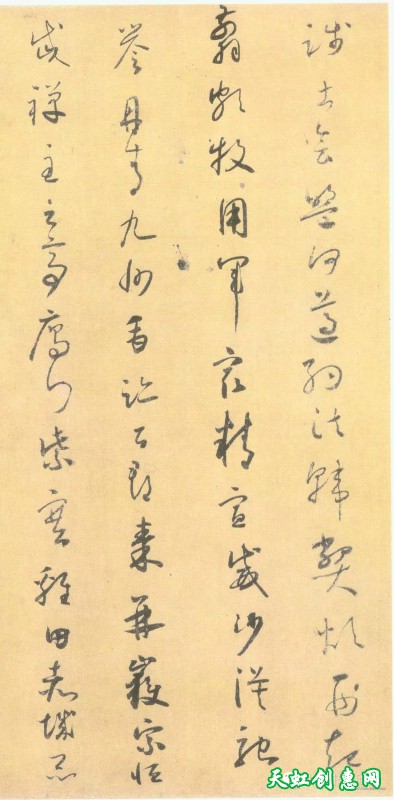 踐土會盟何遵約法韓弊煩刑起
翦頗牧用軍最精宣威沙漠馳
譽丹青九州禹跡百郡秦并嶽宗恒
岱禪主云亭雁門紫塞雞田赤城昆
天虹创惠网